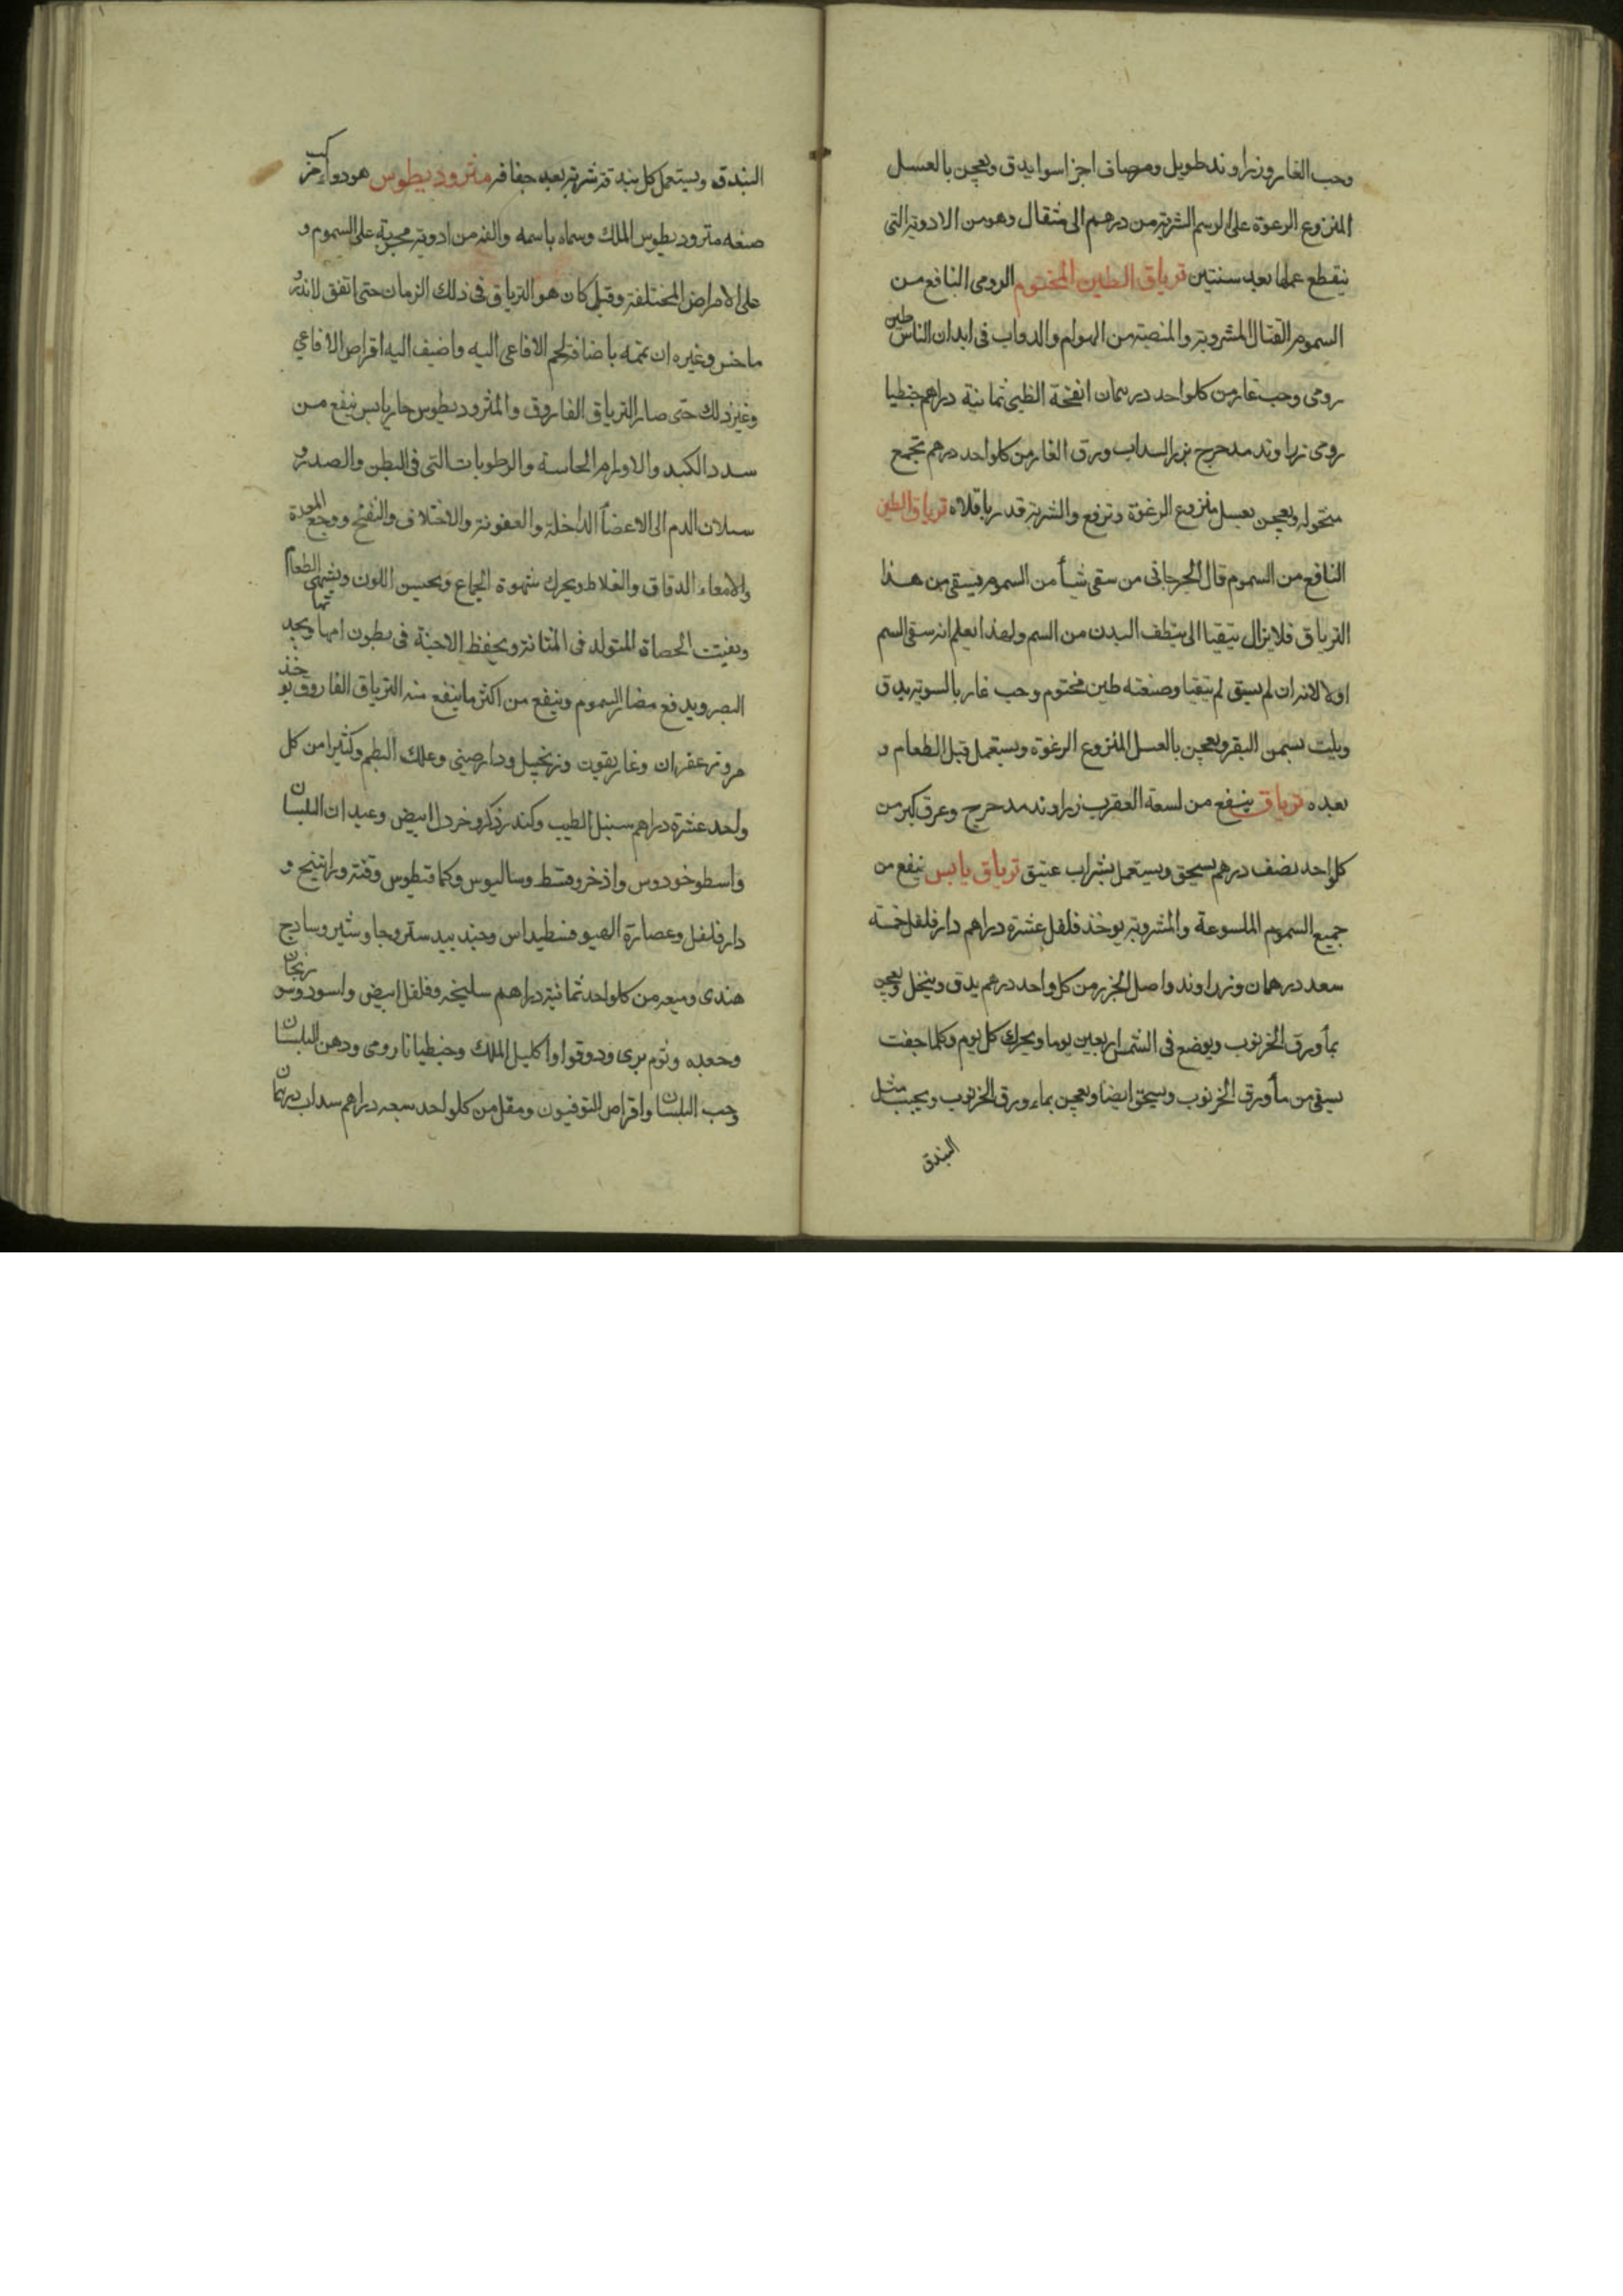 وحب الغار وزراوند طويل ومر صاف اجزا سوا يدق ويعجن بالعسل
المنزوع الرغوة على الرسم الشربة من درهم الى مثقال وهو من الادوية التى
ينقطع عملها بعد سنتين ترياق الطين المختوم الرومى النافع من
السموم القتال المشروبة والمنصبة من الهوام والدواب فى ابدان الناس طين
رومى وحب غار من كلواحد درهمان انفحة الظبى ثمانية دراهم جنطيا
رومى زراوند مدحرج بزر السداب ورق الغار من كلواحد درهم تجمع
منخوله ويعجن بعسل منزوع الرغوة وترفع والشربة قدر باقلاه ترياق الطين
النافع من السموم قال الجرجانى من سقى شيأ من السموم فيسقى من هذا
الترياق فلا يزال يتقيا الى ينظف البدن من السم ولهذا يعلم انه سقى السم
اولا لانه ان لم يسق لم يتقيا وصنعته طين مختوم وحب غار بالسوية يدق
ويلت بسمن البقر ويعجن بالعسل المنزوع الرغوة ويستعمل قبل الطعام و
بعده ترياق ينفع من لسعة العقرب زراوند مدحرج وعرق كبر من
كلواحد نصف درهم يسحق ويستعمل بشراب عتيق ترياق يابس ينفع من
جميع السموم الملسوعة والمشروبة يوخذ فلفل عشرة دراهم دار فلفل خمسة
سعد درهمان وزراوند واصل الجزر من كل واحد درهم يدق وينخل ويعجن
بمأ ورق الخرنوب ويوضع فى الشمس اربعين يوما ويحرك كل يوم وكلما جفت
يسقى من مأ ورق الخرنوب ويسحق ايضا ويعجن بماء ورق الخرنوب ويحبب مثل
البندق
البندق ويستعمل كل بندقة شربة بعد جفافه مثروديطوس هو دواء مركب
صنعه مثروديطوس الملك وسماه باسمه والفه من ادوية مجربة على السموم و
على الامراض المختلفة وقيل كان هو الترياق فى ذلك الزمان حتى اتفق لاندرو
ماخس وغيره ان تممه باضافة لحم الافاعى اليه واضيف اليه اقراص الافاعي
وغير ذلك حتى صار الترياق الفاروق والمثروديطوس حار يابس ينفع من
سدد الكبد والاورام الحاسية والرطوبات التى فى البطن والصدر و
سيلان الدم الى الاعضأ الداخلة والعفونة والاختلاف والنفخ ووجع المعدة
والامعاء الدقاق والغلاظ ويحرك شهوة الجماع ويحسن اللون ويشهى الطعام
ويفتت الحصاة المتولد فى المثانة ويحفظ الاجنة فى بطون امهاتها ويحد
البصر ويدفع مضار السموم وينفع من اكثر ما ينفع منه الترياق الفاروق يوخذ
مر وزعفران وغاريقون وزنجبيل ودارصينى وعلك البطم وكثيرا من كل
واحد عشرة دراهم سنبل الطيب وكندر ذكر وخردل ابيض وعيدان البلسان
واسطوخودوس واذخر وقسط وساليوس وكمافيطوس وقنة وراتينج و
دار فلفل وعصارة الهيوفسطيداس وجندبيدستر وجاوشير وسادج
هندى وميعه من كلواحد ثمانية دراهم سليخه وفلفل ابيض واسود وسورنجان
وجعده وثوم برى ودوقوا واكليل الملك وجنطيانا رومى ودهن البلسان
وحب البلسان واقراص للتوفيون ومقل من كلواحد سبعه دراهم سداب درهمان